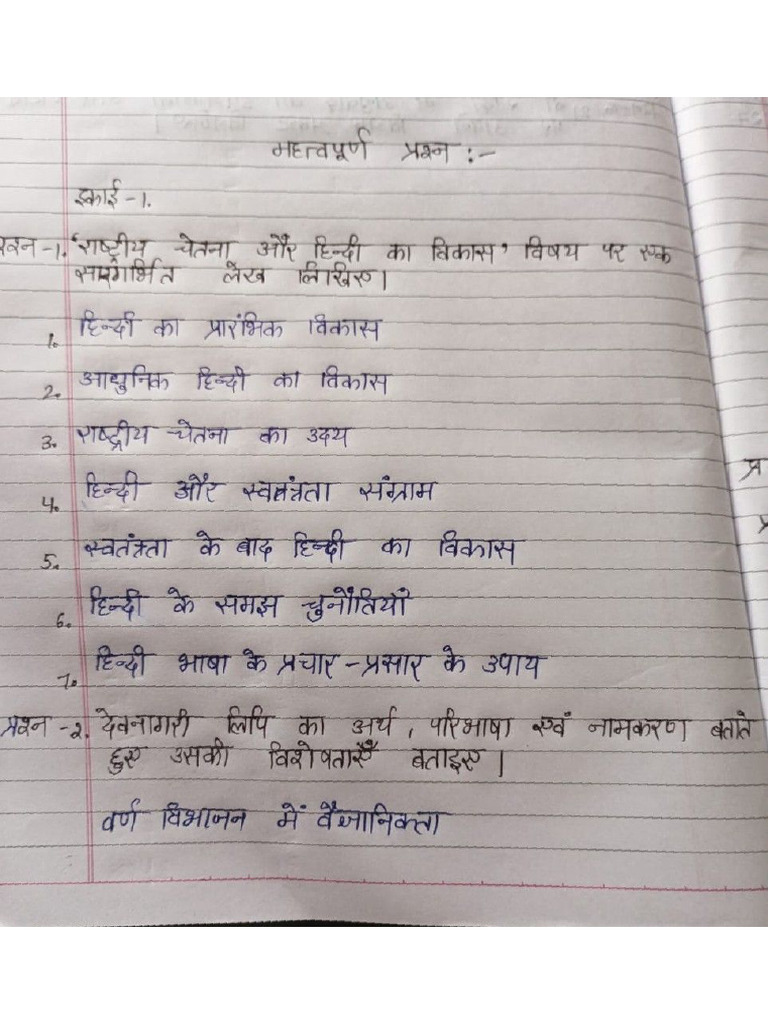 महत्वपूर्ण प्रश्न :-
इकाई-1.
प्रश्न-1. 'राष्ट्रीय चेतना और हिन्दी का विकास' विषय पर एक
सारगर्भित लेख लिखिए।
1. हिन्दी का प्रारंभिक विकास
2. आधुनिक हिन्दी का विकास
3. राष्ट्रीय चेतना का उदय
4. हिन्दी और स्वतंत्रता संग्राम
5. स्वतंत्रता के बाद हिन्दी का विकास
6. हिन्दी के समझ चुनौतियाँ
7. हिन्दी भाषा के प्रचार-प्रसार के उपाय
प्रश्न-2. देवनागरी लिपि का अर्थ, परिभाषा एवं नामकरण बताते
हुए उसकी विशेषताएँ बताइए।
वर्ण विभाजन में वैज्ञानिकता